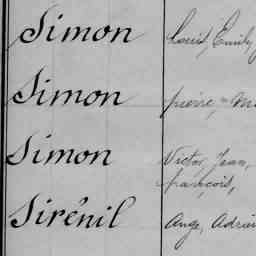 Simon Louis, Emile
Simon pierre,
Simon Victor, Jean,
françois,
Sirénil Ange, Adrien